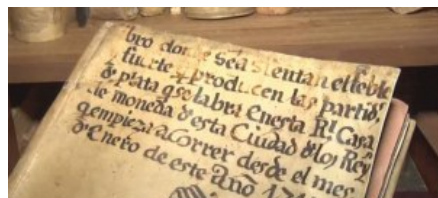 bro donde sea sientan el feble
fuerte q producen las partid.s
de plata q se labra Enesta R.l Casa
de moneda de esta Ciudad de los Rey.s
q empieza a Correr desde el mes
de Enero de este Año 17